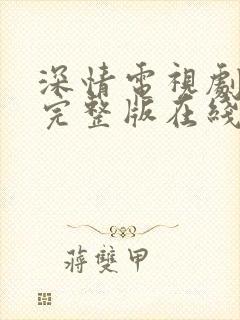 深情電視劇
完整版在綫
蔣雙甲